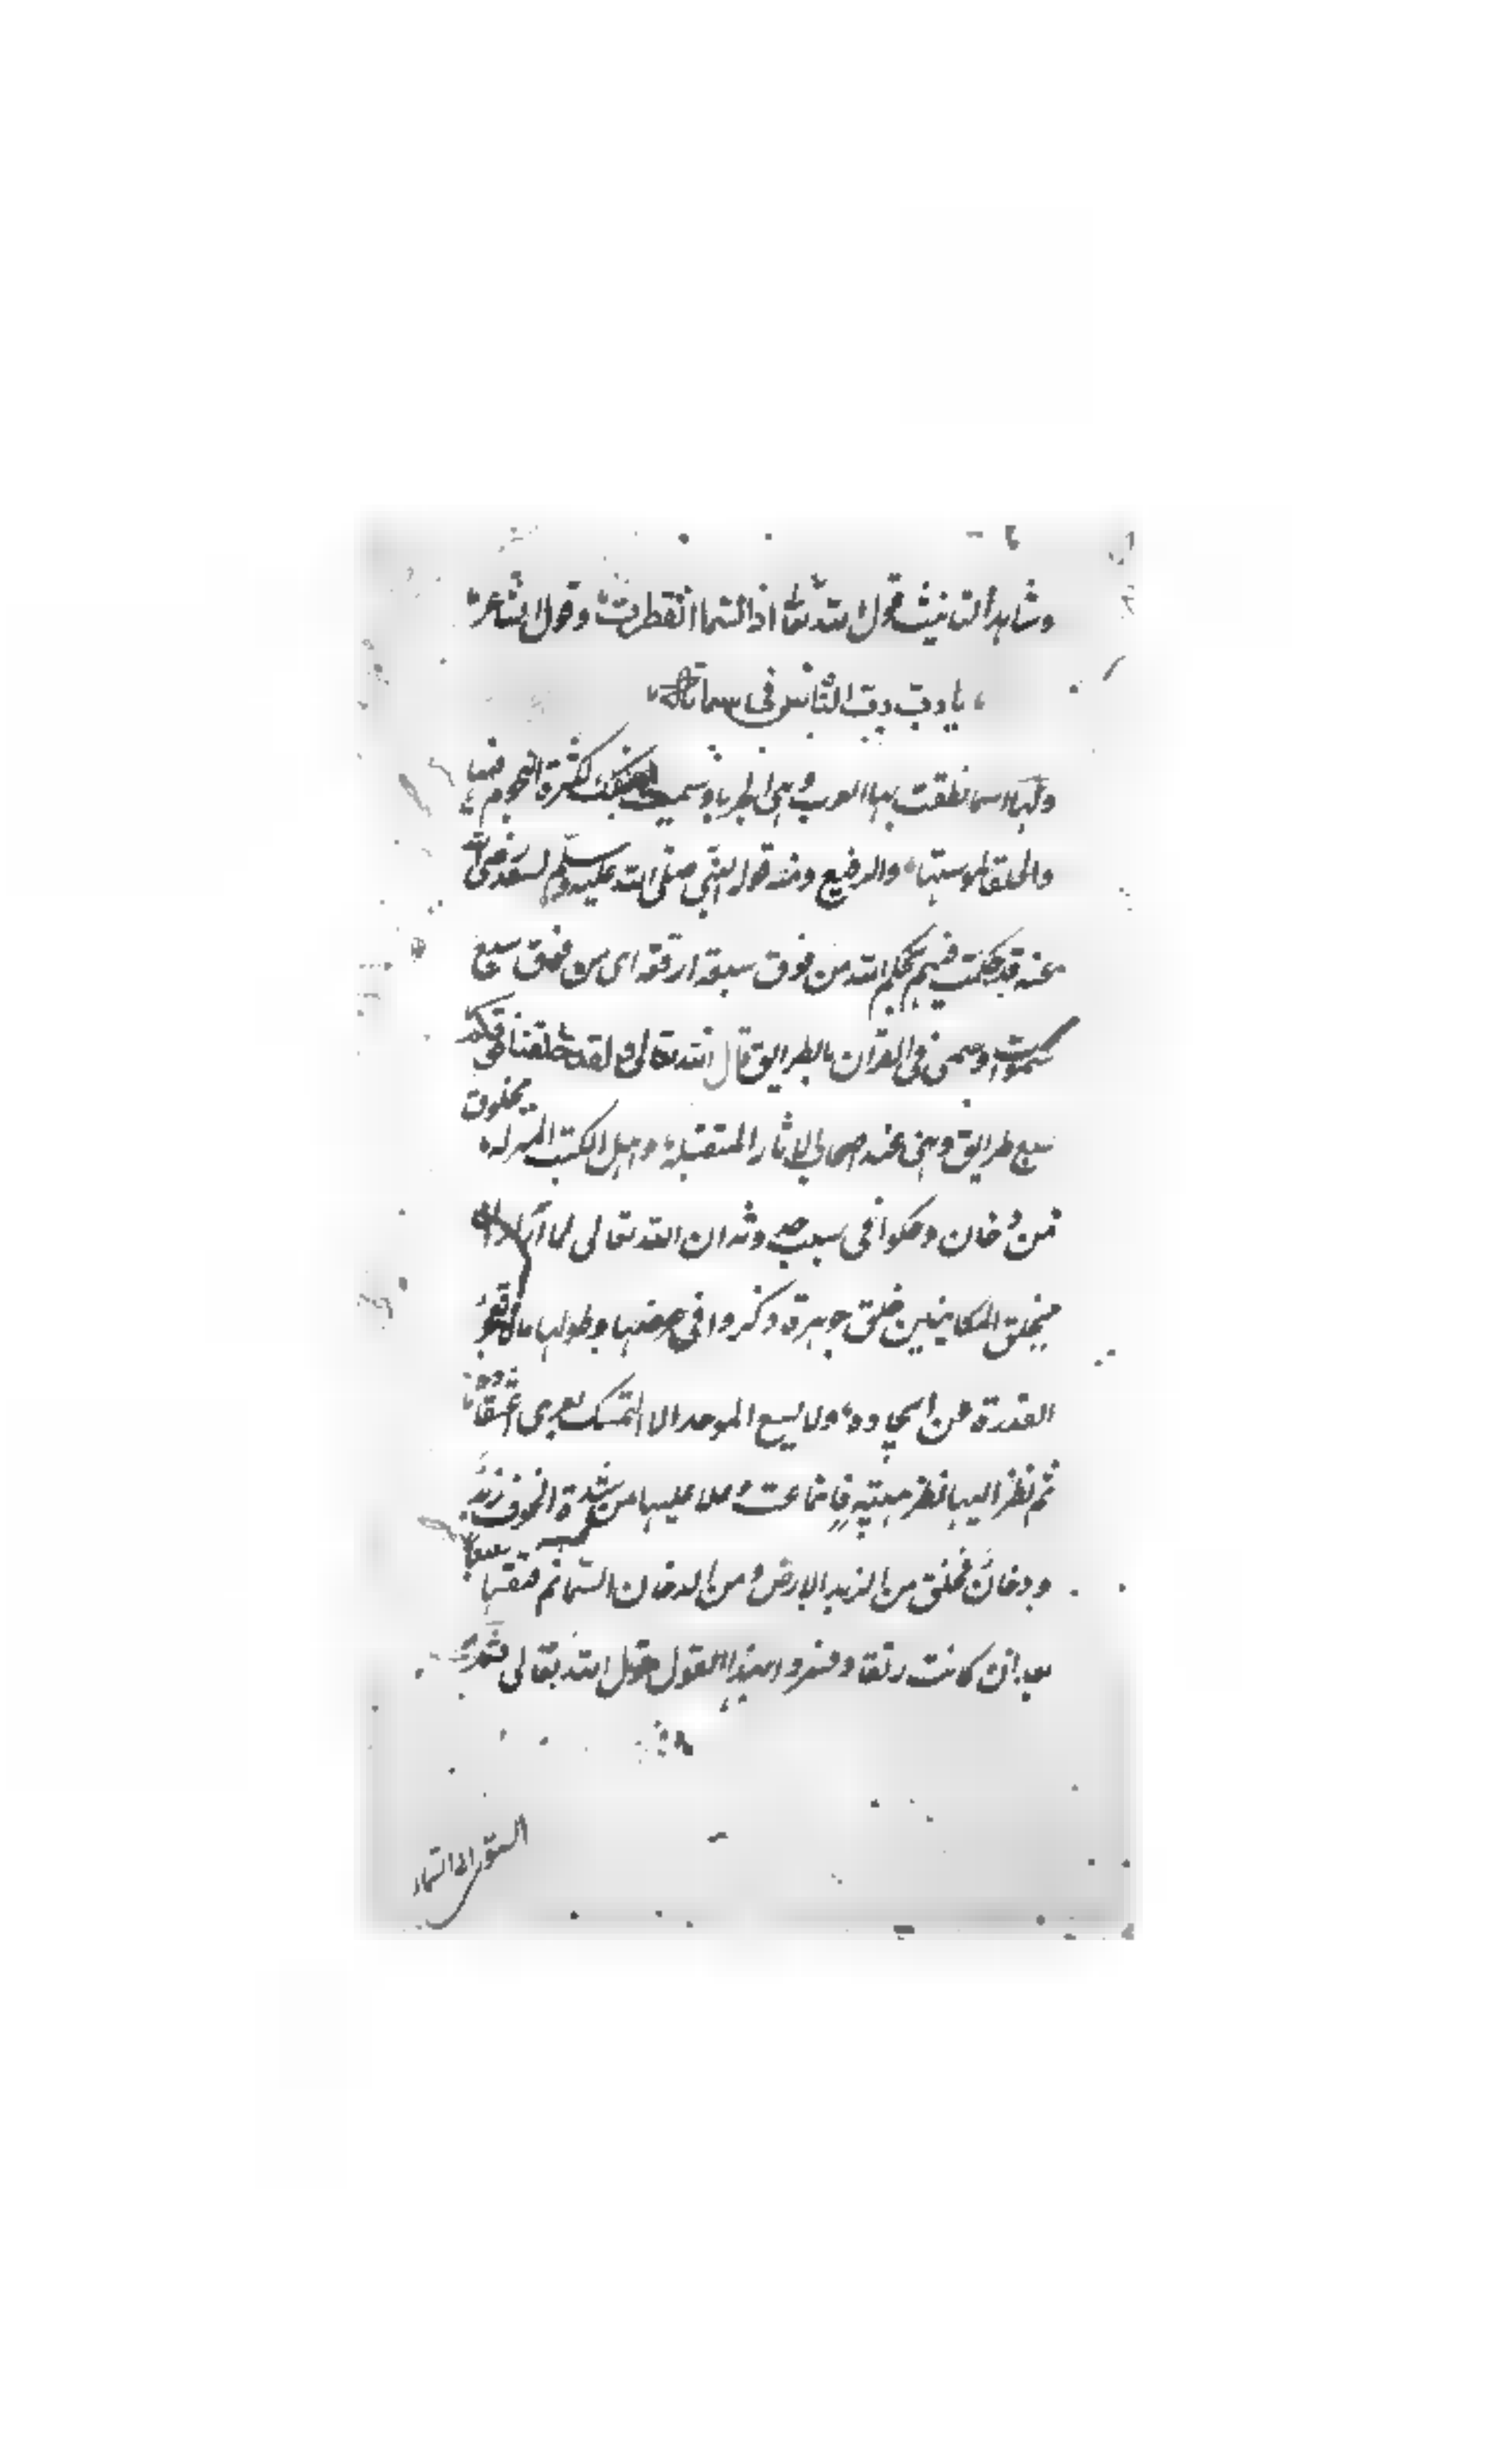 وشاهد التانيث قول الله تعا اذا السما انفطرت وقول الشاعر
يا رب رب الناس في سماته
ولها اسما نطقت بها العرب وهي الجربا وسميت بذلك لكثرة النجوم فيها
والخلقا لملوستها والرقيع ومنه قول النبي صلى الله عليه وسلم لسعد رضي الله
عنه قد حكمت فيهم بحكم الله من فوق سبعة ارقعة اي من فوق سبع
سموات وسمى في القران بالطرايق قال الله تعالى ولقد خلقنا فوقكم
سبع طرايق وهي عند اصحاب الاثار المتقبلة واهل الكتب المنزلة مخلوقة
من دخان وحكوا في سبب حدوثه ان الله تعالى لما اراد ان
يخلق المكانين خلق جوهرة ذكروا في عرضها وطولها مالا تعجز
القدرة عن ايجاده ولا يسع الموحد الا التمسك بعرى اعتقاده
ثم نظر اليها نظر هيبة فانماعت وعلا عليها من شدة الخوف زبد
ودخان فخلق من الزبد الارض ومن الدخان السما ثم فتقها سبعا
بعد ان كانت رتقا وفسروا بهذا القول قول الله تعالى ثم
استوى الى السماء